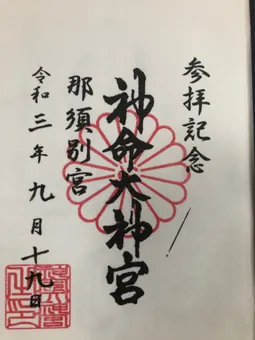 参拝記念
神命大神宮
那須別宮
令和三年九月十九日